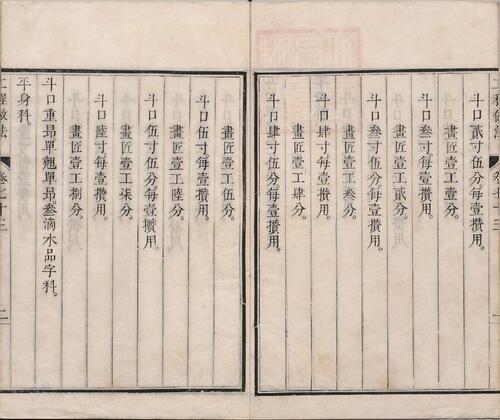 斗口貳寸伍分。每壹攢用。
畫匠壹工壹分。
斗口叁寸每壹攢用。
畫匠壹工貳分。
斗口叁寸伍分。每壹攢用。
畫匠壹工叁分。
斗口肆寸每壹攢用。
畫匠壹工肆分。
斗口肆寸伍分。每壹攢用。
畫匠壹工伍分。
斗口伍寸每壹攢用。
畫匠壹工陸分。
斗口伍寸伍分。每壹攢用。
畫匠壹工柒分。
斗口陸寸每壹攢用。
畫匠壹工捌分。
斗口重昂單翹單昂叁滴水品字科。
平身科。
工程做法 卷七十三 二